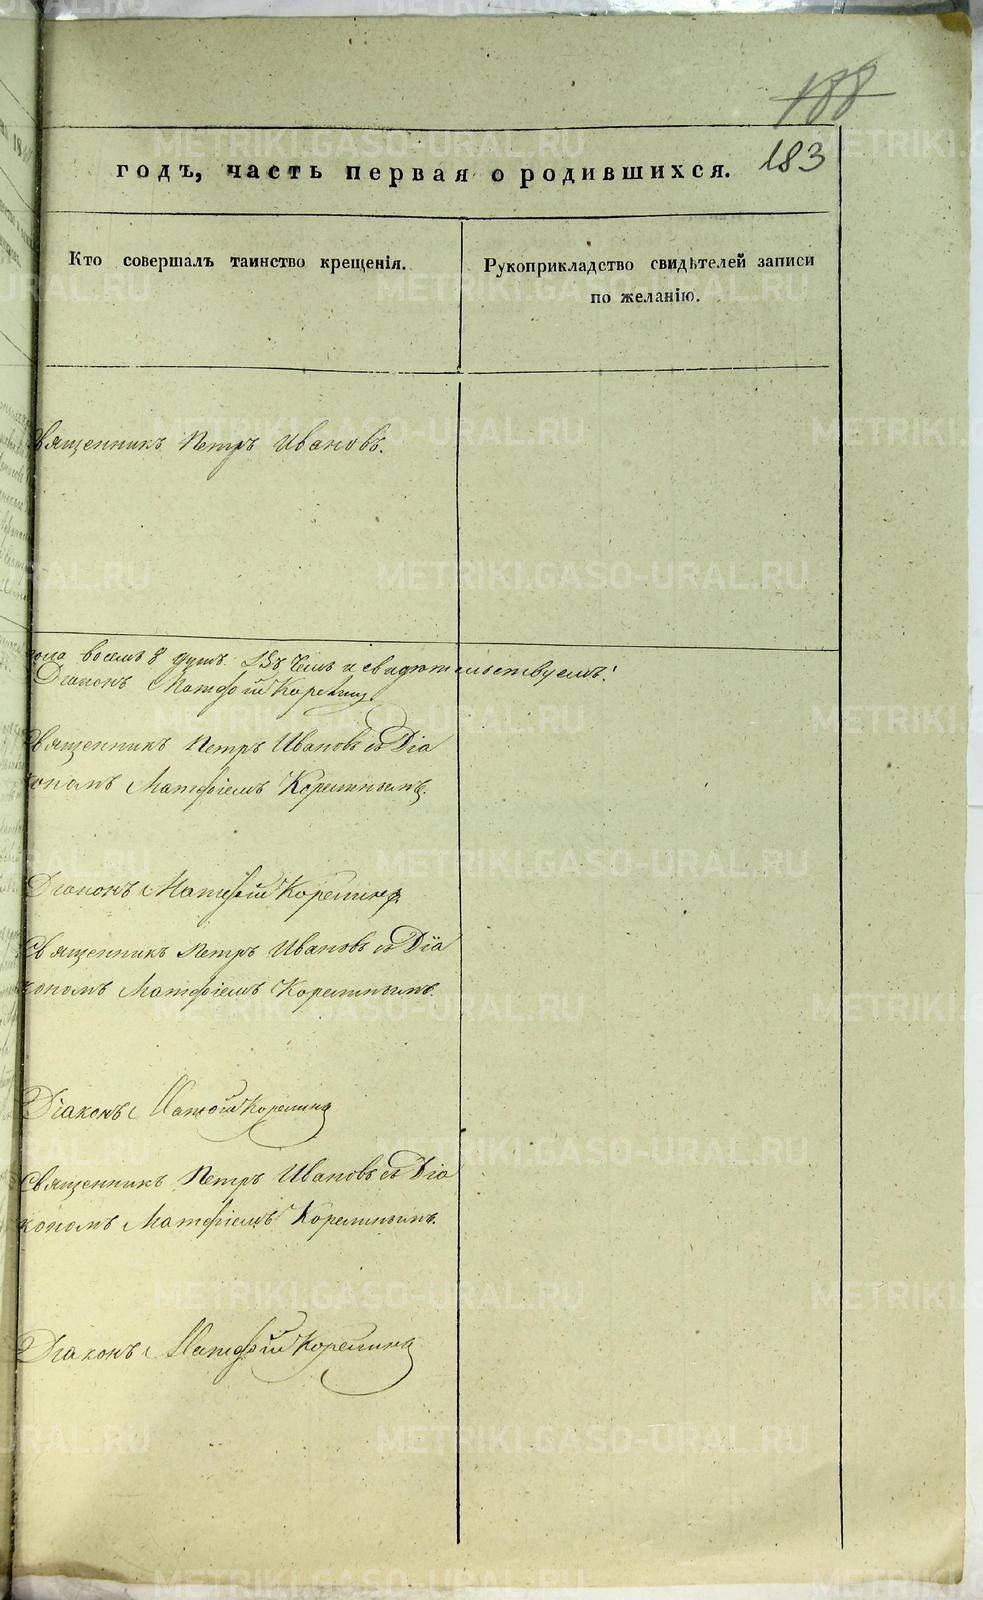 188
183
годъ, часть первая о родившихся.
Кто совершалъ таинство крещенія.
Рукоприкладство свидѣтелей записи
по желанію.
Священникъ Петръ Ивановъ.
пола восемь 8 душъ. Въ чемъ и свидѣтельствуемъ:
Діаконъ Матѳей Корепинъ
Священникъ Петръ Ивановъ съ Діа
кономъ Матѳіемъ Корепинымъ.
Діаконъ Матѳей Корепинъ
Священникъ Петръ Ивановъ съ Діа
кономъ Матѳіемъ Корепинымъ.
Діаконъ Матѳей Корепинъ
Священникъ Петръ Ивановъ съ Діа
кономъ Матѳіемъ Корепинымъ.
Діаконъ Матѳей Корепинъ
METRIKI.GASO-URAL.RU